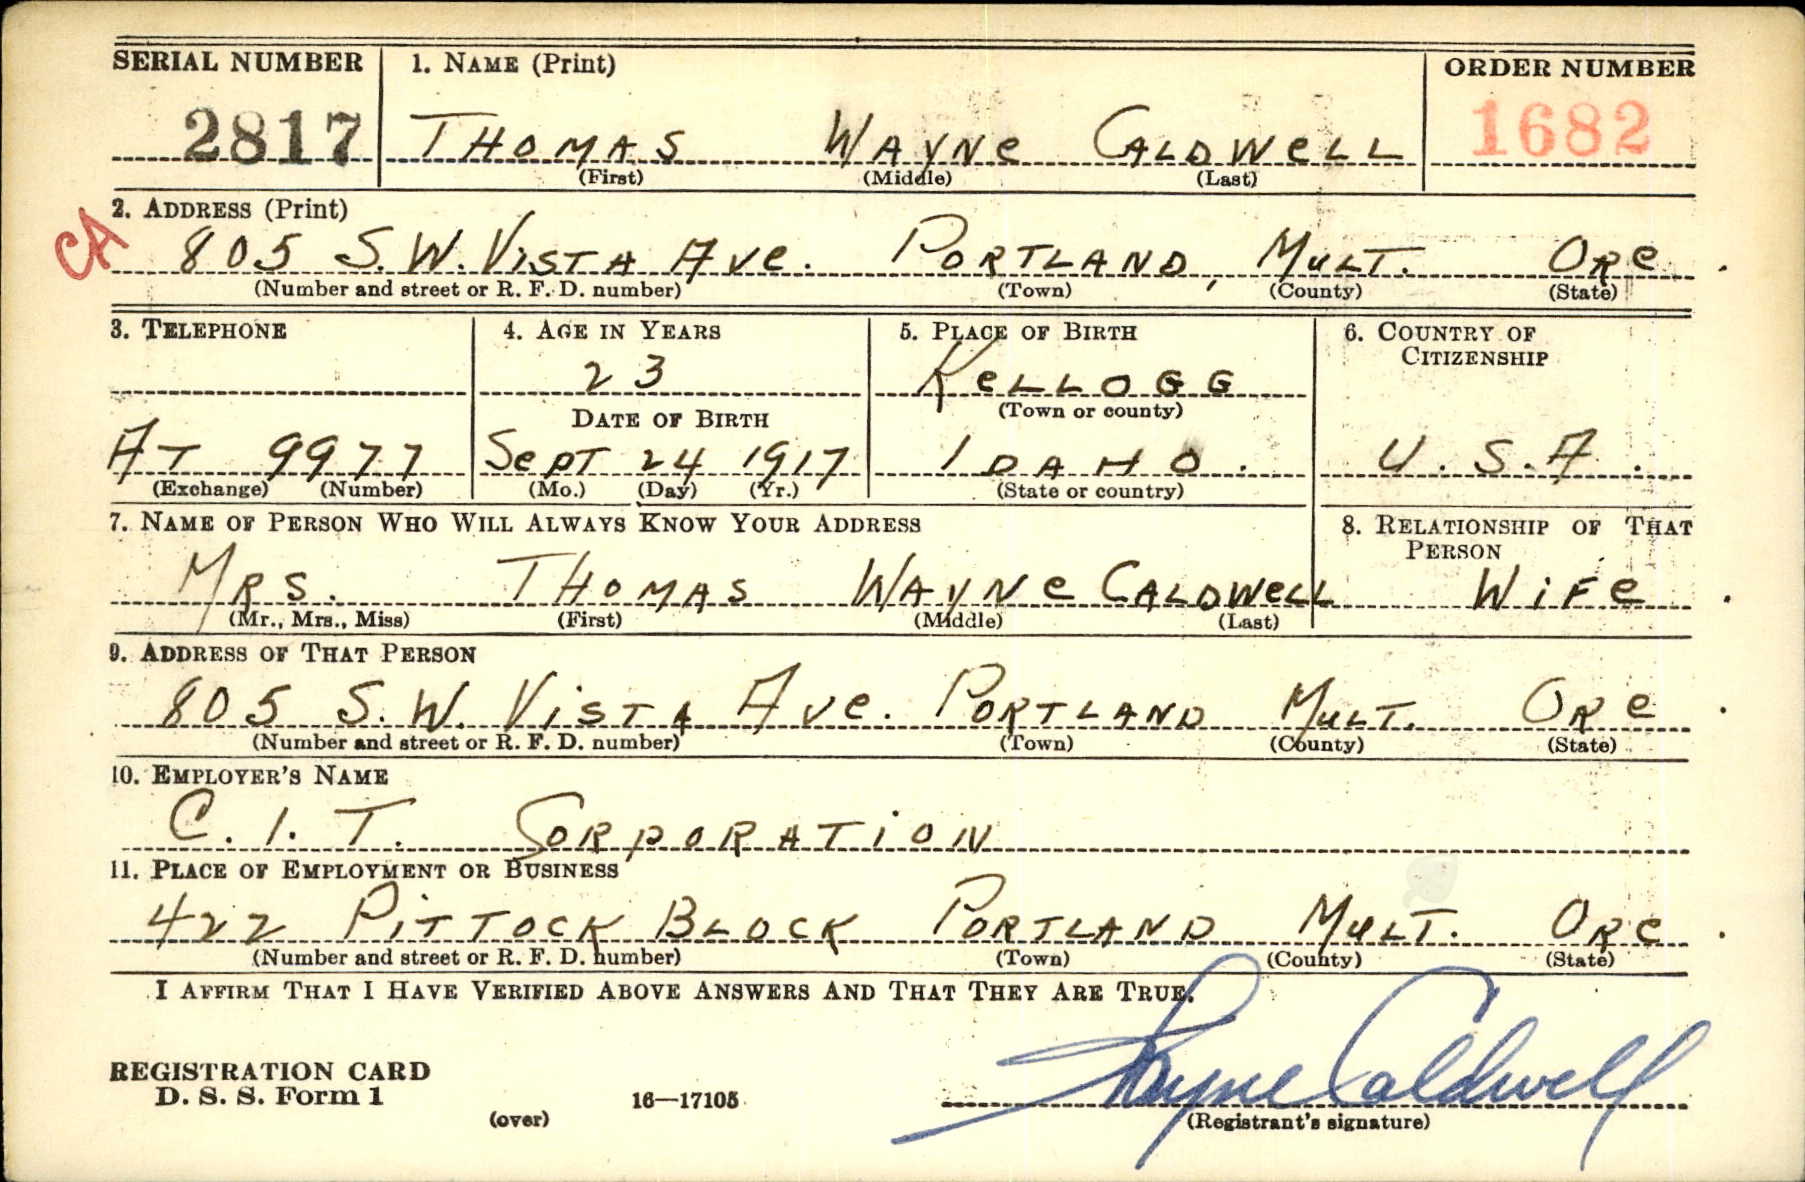 SERIAL NUMBER 1. NAME (Print) ORDER NUMBER
2817 THOMAS WAYNE CALDWELL 1682
(First) (Middle) (Last)
2. ADDRESS (Print)
CA 805 S.W. VISTA AVE. PORTLAND, MULT. ORE.
(Number and street or R. F. D. number) (Town) (County) (State)
3. TELEPHONE 4. AGE IN YEARS 5. PLACE OF BIRTH 6. COUNTRY OF
CITIZENSHIP
23 KELLOGG
DATE OF BIRTH (Town or county)
AT 9977 SEPT 24 1917 IDAHO. U.S.A.
(Exchange) (Number) (Mo.) (Day) (Yr.) (State or country)
7. NAME OF PERSON WHO WILL ALWAYS KNOW YOUR ADDRESS 8. RELATIONSHIP OF THAT
PERSON
MRS. THOMAS WAYNE CALDWELL WIFE.
(Mr., Mrs., Miss) (First) (Middle) (Last)
9. ADDRESS OF THAT PERSON
805 S.W. VISTA AVE. PORTLAND MULT. ORE.
(Number and street or R. F. D. number) (Town) (County) (State)
10. EMPLOYER'S NAME
C.I.T. CORPORATION
11. PLACE OF EMPLOYMENT OR BUSINESS
422 PITTOCK BLOCK PORTLAND MULT. ORE.
(Number and street or R. F. D. number) (Town) (County) (State)
I AFFIRM THAT I HAVE VERIFIED ABOVE ANSWERS AND THAT THEY ARE TRUE.
REGISTRATION CARD
D. S. S. Form 1 Wayne Caldwell
(over) 16—17105 (Registrant's signature)